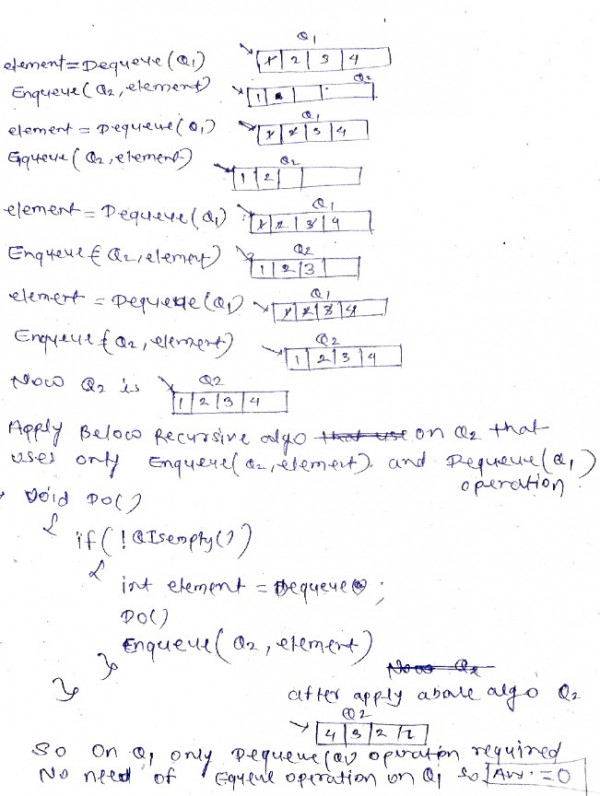 Q1
element = Dequeue(Q1) 1 2 3 4
Q2
Enqueue(Q2, element) 1
Q1
element = Dequeue(Q1) 1 2 3 4
Q2
Eqyeue(Q2, element) 1 2
Q1
element = Dequeue(Q1) 1 2 3 4
Q2
Enqyeue(Q2, element) 1 2 3
Q1
element = Dequeue(Q1) 1 2 3 4
Q2
Enqyeue(Q2, element) 1 2 3 4
Q2
Now Q2 is 1 2 3 4
Apply Below Recursive algo that use on Q2 that
uses only Enqueue(Q2, element) and Dequeue(Q1)
operation
Void DO()
{
if(!QIsempty())
{
int element = Dequeue();
DO()
Enqueue(Q2, element)
}
Now Q2
}
after apply above algo Q2
Q2
4 3 2 1
So On Q1 only Dequeue(Q1) operation required
No need of Eqyeue operation on Q1 so Ans. = 0